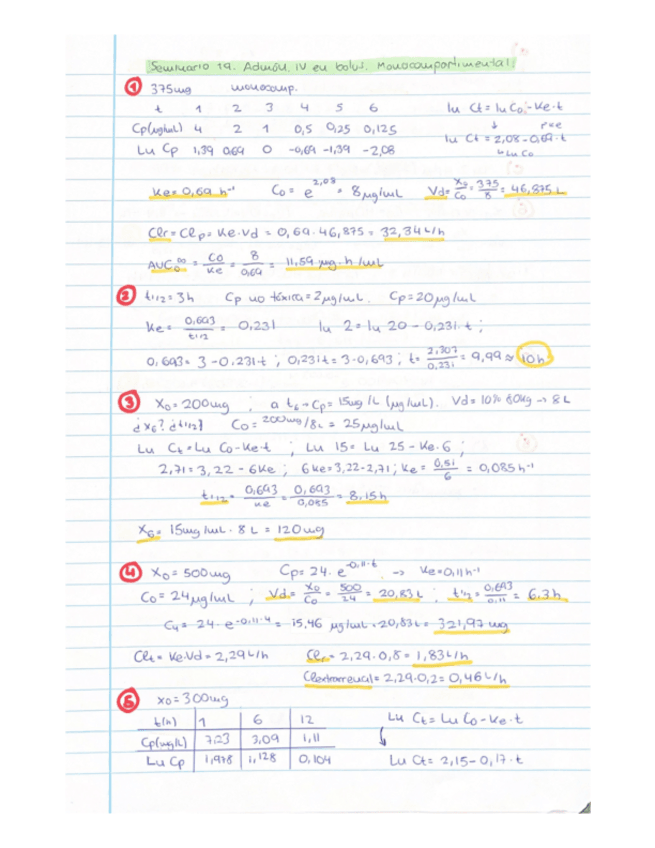 Seminario 1a. Admón. IV en bolus. Monocompartimental.
1 375mg monocomp.
t 1 2 3 4 5 6 ln Ct = ln Co - Ke·t
Cp(μg/mL) 4 2 1 0,5 0,25 0,125 ln Ct = 2,08 - 0,69·t
Ln Cp 1,39 0,69 0 -0,69 -1,39 -2,08 ↳ Ln Co
Ke = 0,69 h⁻¹ Co = e^2,08 = 8 μg/mL Vd = Xo/Co = 375/8 = 46,875 L
Clr = Clp = Ke·Vd = 0,69·46,875 = 32,34 L/h
AUC₀^∞ = Co/Ke = 8/0,69 = 11,59 μg·h/mL
2 t1/2 = 3h Cp no tóxica = 2 μg/mL. Cp = 20 μg/mL
Ke = 0,693/t1/2 = 0,231 ln 2 = ln 20 - 0,231·t ;
0,693 = 3 - 0,231·t ; 0,231t = 3 - 0,693 ; t = 2,307/0,231 = 9,99 ≈ 10h
3 Xo = 200mg ; a t6 → Cp = 15mg/L (μg/mL). Vd = 10% 80kg → 8L
¿X6? ¿t1/2? Co = 200mg/8L = 25 μg/mL
Ln Ct = Ln Co - Ke·t ; Ln 15 = Ln 25 - Ke·6 ;
2,71 = 3,22 - 6Ke ; 6Ke = 3,22 - 2,71 ; Ke = 0,51/6 = 0,085 h⁻¹
t1/2 = 0,693/Ke = 0,693/0,085 = 8,15 h
X6 = 15mg/mL · 8 L = 120mg
4 Xo = 500mg Cp = 24·e^-0,11·t → Ke = 0,11 h⁻¹
Co = 24 μg/mL ; Vd = Xo/Co = 500/24 = 20,83 L ; t1/2 = 0,693/0,11 = 6,3h
C4 = 24·e^-0,11·4 = 15,46 μg/mL · 20,83L = 321,97 mg
Clt = Ke·Vd = 2,29 L/h Clr = 2,29·0,8 = 1,83 L/h
Clextrarrenal = 2,29·0,2 = 0,46 L/h
5 Xo = 300mg
t(h) 1 6 12 Ln Ct = Ln Co - Ke·t
Cp(mg/L) 7,23 3,09 1,11
Ln Cp 1,978 1,128 0,104 Ln Ct = 2,15 - 0,17·t